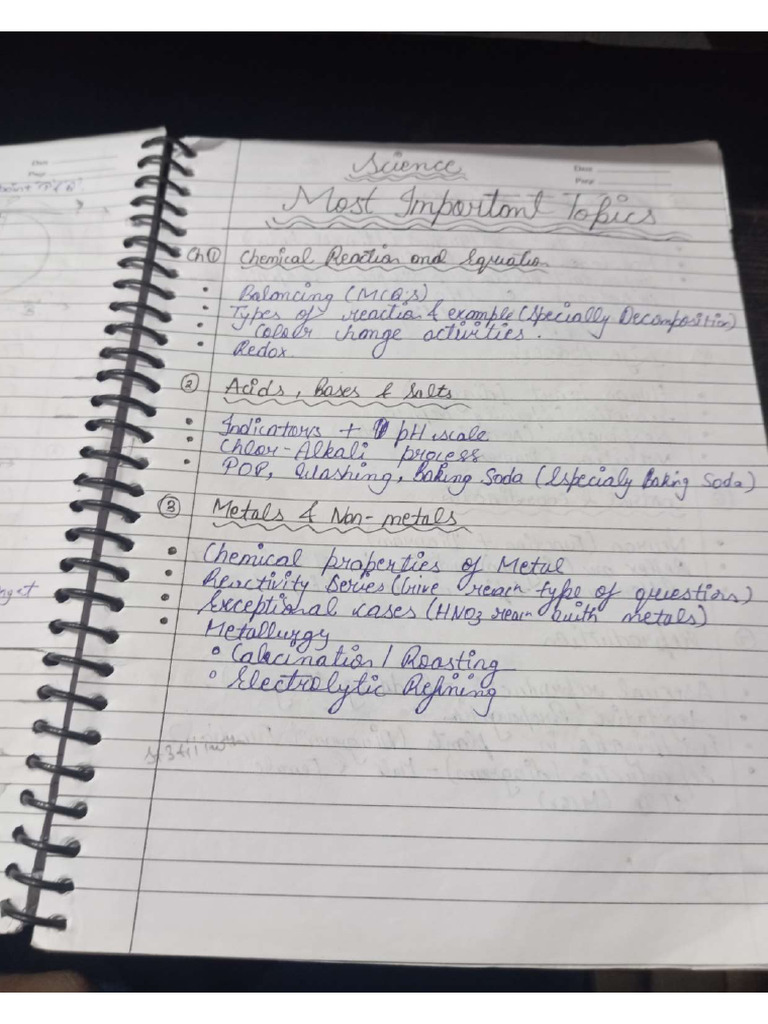 Science
Date
Page
Most Important Topics
Ch ① Chemical Reaction and Equation
• Balancing (MCQ's)
• Types of reaction & example (specially Decomposition)
• Colour change activities.
• Redox
② Acids, Bases & Salts
• Indicators + pH scale
• Chlor-Alkali process
• POP, Washing, Baking Soda (Especialy Baking Soda)
③ Metals & Non-metals
• Chemical properties of Metal
• Reactivity Series (Give reacn type of question)
• Exceptional cases (HNO3 reacn with metals)
• Metallurgy
• Calcination / Roasting
• Electrolytic Refining